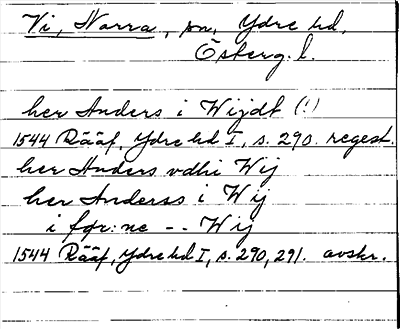 Vi, Norra, sn, Ydre hd,
Österg. l.
her Anders i Wijdt (!)
1544 Rääf, Ydre hd I, s. 290. regest.
her Anders vdhi Wij
her Anderss i Wij
i fgr: ne -- Wij
1544 Rääf, Ydre hd I, s. 290, 291. avskr.